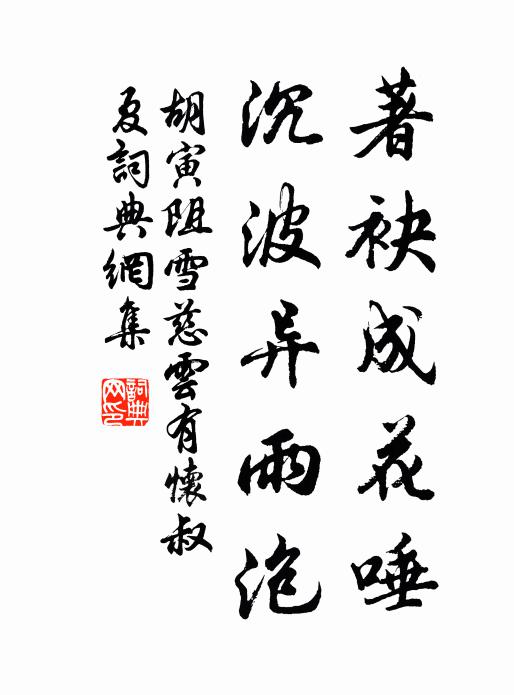 著袂成花唾
沉波异雨泡
胡寅阻雪慈雲有懷叔
夏詞典網集
詞典网印